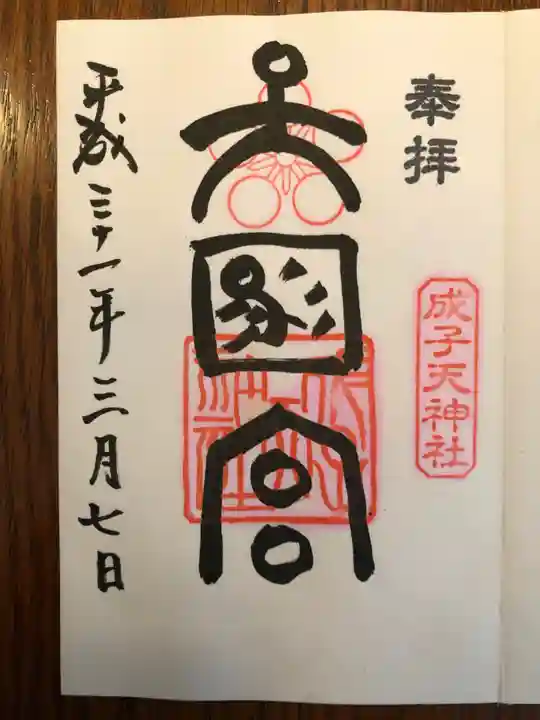 奉拝
成子天神社
天宮
平成三十一年三月七日